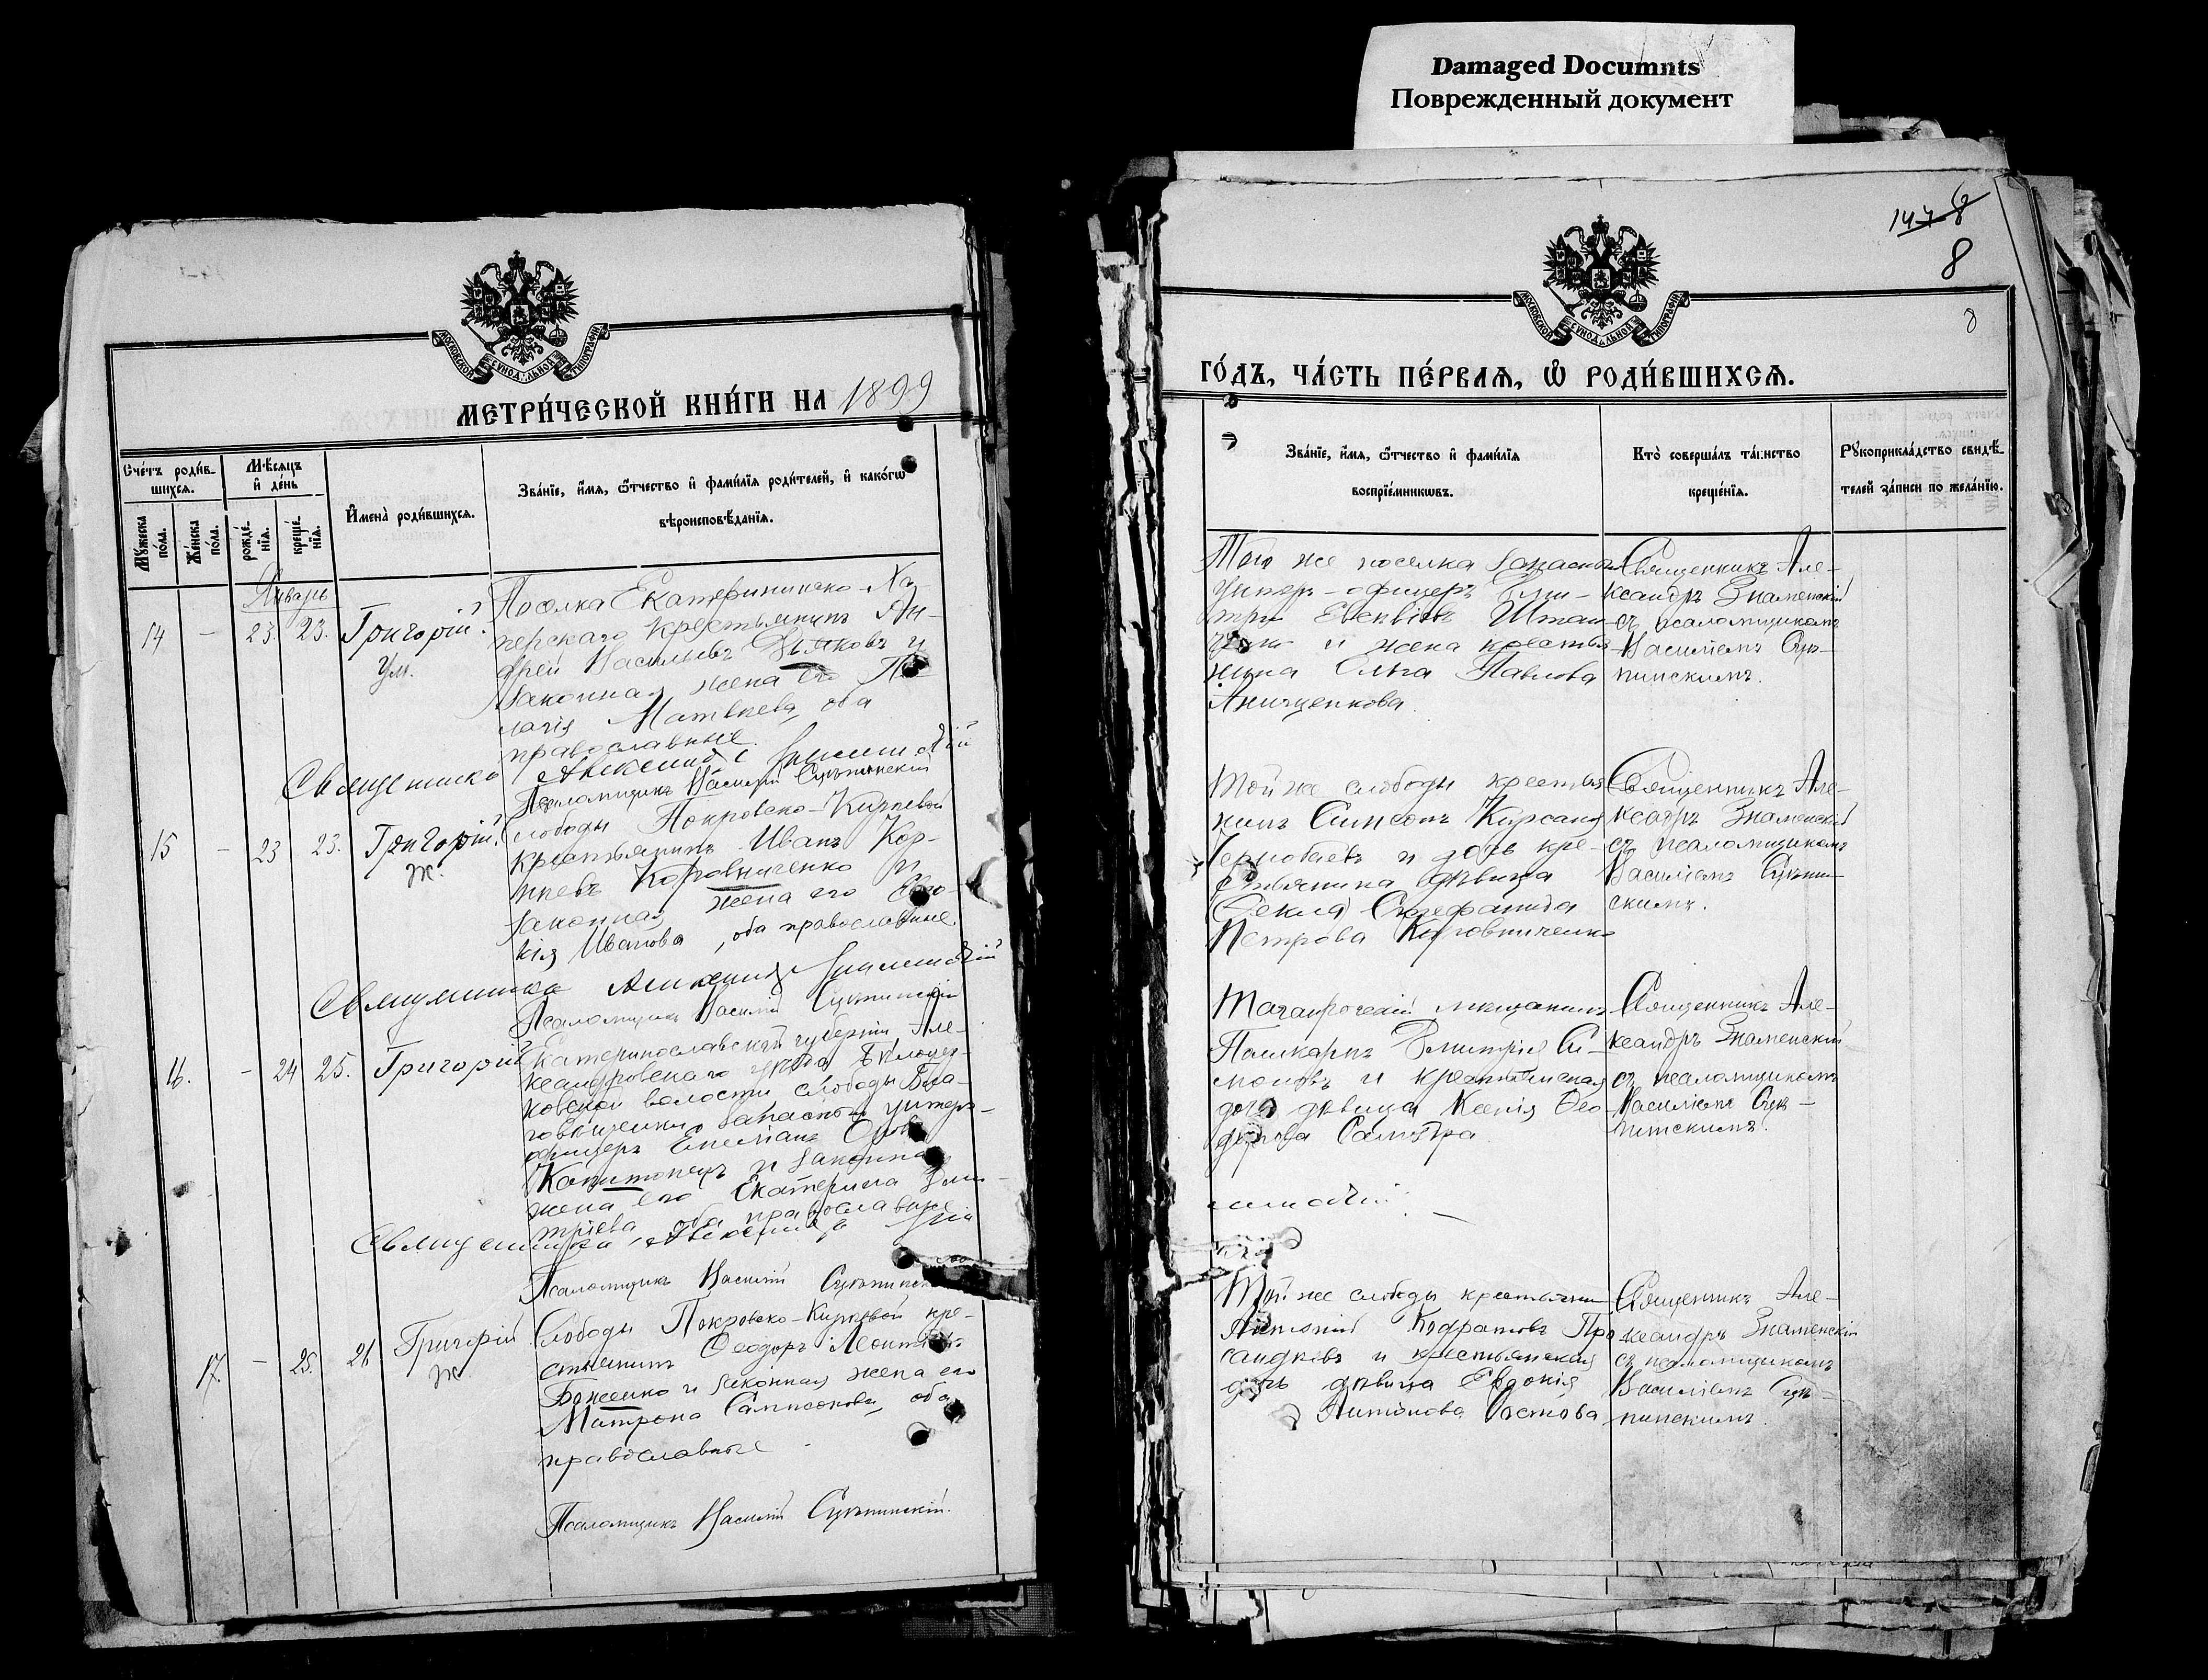 Damaged Documnts
Поврежденный документ
147 8
8
8
МОСКОВСКОЙ СУНОДАЛЬНОЙ ТИПОГРАФІИ
МЕТРИ́ЧЕСКОЙ КНИ́ГИ НА 1899
Сче́тъ роди́в-
шихся.
Му́жеска по́ла.
Же́нска по́ла.
Мѣ́сяцъ и҆ де́нь
рожде́нїѧ.
креще́нїѧ.
И҆мена̀ роди́вшихся.
Зва́нїе, и҆́мя, ѻ҆́тчество и҆ фами́лїя роди́телей, и҆ како́гѡ
вѣроисповѣ́данїя.
Январь
14 – 23. 23. Григорій.
Ум.
Поселка Екатериниско-Ха
перскаго крестьянинъ Ан-
дрей Васильевъ Дьяковъ и
законная жена его Пе
лагія Матвѣева, оба
православные.
Священникъ Александръ Знаменскій
Псаломщикъ Василій Сцепинскій
15 – 23 23. Григорій.
Ж.
Слободы Покровско-Кирѣевой
крестьянинъ Иванъ Кор-
нѣевъ Коровниченко и
законная жена его Евдо-
кія Иванова, оба православные.
Священникъ Александръ Знаменскій
Псаломщикъ Василій Сцепинскій
16. – 24 25. Григорій
Екатеринославской губерніи Але-
ксандровскаго уѣзда
волости слободы Бла-
говѣщенки запасный унтеръ-
офицеръ Емеліанъ
Капитонецъ и законная
жена его Екатерина Дми-
тріева, оба православные
Священникъ Александръ
Псаломщикъ Василій Сцепинскій
17. – 25. 26 Григорій
Ж.
Слободы Покровско-Кирѣевой кре-
стьянинъ Ѳеодоръ Леонтьевъ
Боженко и законная жена его
Матрона Сампсонова, оба
православные
Псаломщикъ Василій Сцепинскій.
МОСКОВСКОЙ СУНОДАЛЬНОЙ ТИПОГРАФІИ
ГО́ДЪ, ЧА́СТЬ ПЕ́РВАЯ, Ѡ҆ РОДИ́ВШИХСЯ.
Зва́нїе, и҆́мя, ѻ҆́тчество и҆ фами́лїя
воспрїе́мникѡвъ.
Кто̀ соверша́лъ та́инство
креще́нїя.
Рꙋкоприкла́дство свидѣ́-
телей за́писи по жела́нїю.
Того же поселка запасный
унтеръ-офицеръ Дми-
трій
и жена крестья-
нина Ольга Павлова
Анищенкова.
Священникъ Але-
ксандръ Знаменскій
съ псаломщикомъ
Василіемъ Сце-
пинскимъ.
Той же слободы крестья
нинъ Симеонъ
и дочь кре-
стьянина дѣвица
Стефанида
Петрова Коровниченко
Священникъ Але-
ксандръ Знаменскій
съ псаломщикомъ
Василіемъ Сцепин-
скимъ.
Таганрогскій мѣщанинъ
Димитрій Си-
моновъ и крестьянская
дочь дѣвица Ксенія Ѳео-
дорова
Священникъ Але-
ксандръ Знаменскій
съ псаломщикомъ
Василіемъ Сце-
пинскимъ.
Той же слободы крестьянинъ
Антоній Кодратовъ
и крестьянская
дочь дѣвица Евдокія
Антонова
Священникъ Але-
ксандръ Знаменскій
съ псаломщикомъ
Василіемъ Сце-
пинскимъ.